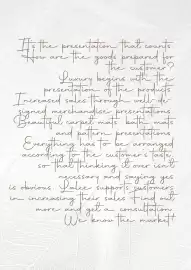 It's the presentation that counts
How are the goods prepared for
the customer?
Luxury begins with the
presentation of the products.
Increased sales through well de-
signed merchandise presentations.
Beautiful carpet mats, bath mats
and pattern presentations.
Everything has to be arranged
according to the customer's taste,
so that thinking it over isn't
necessary and saying yes
is obvious. Lalee supports customers
in increasing their sales. Find out
more and get a consultation.
We know the market!